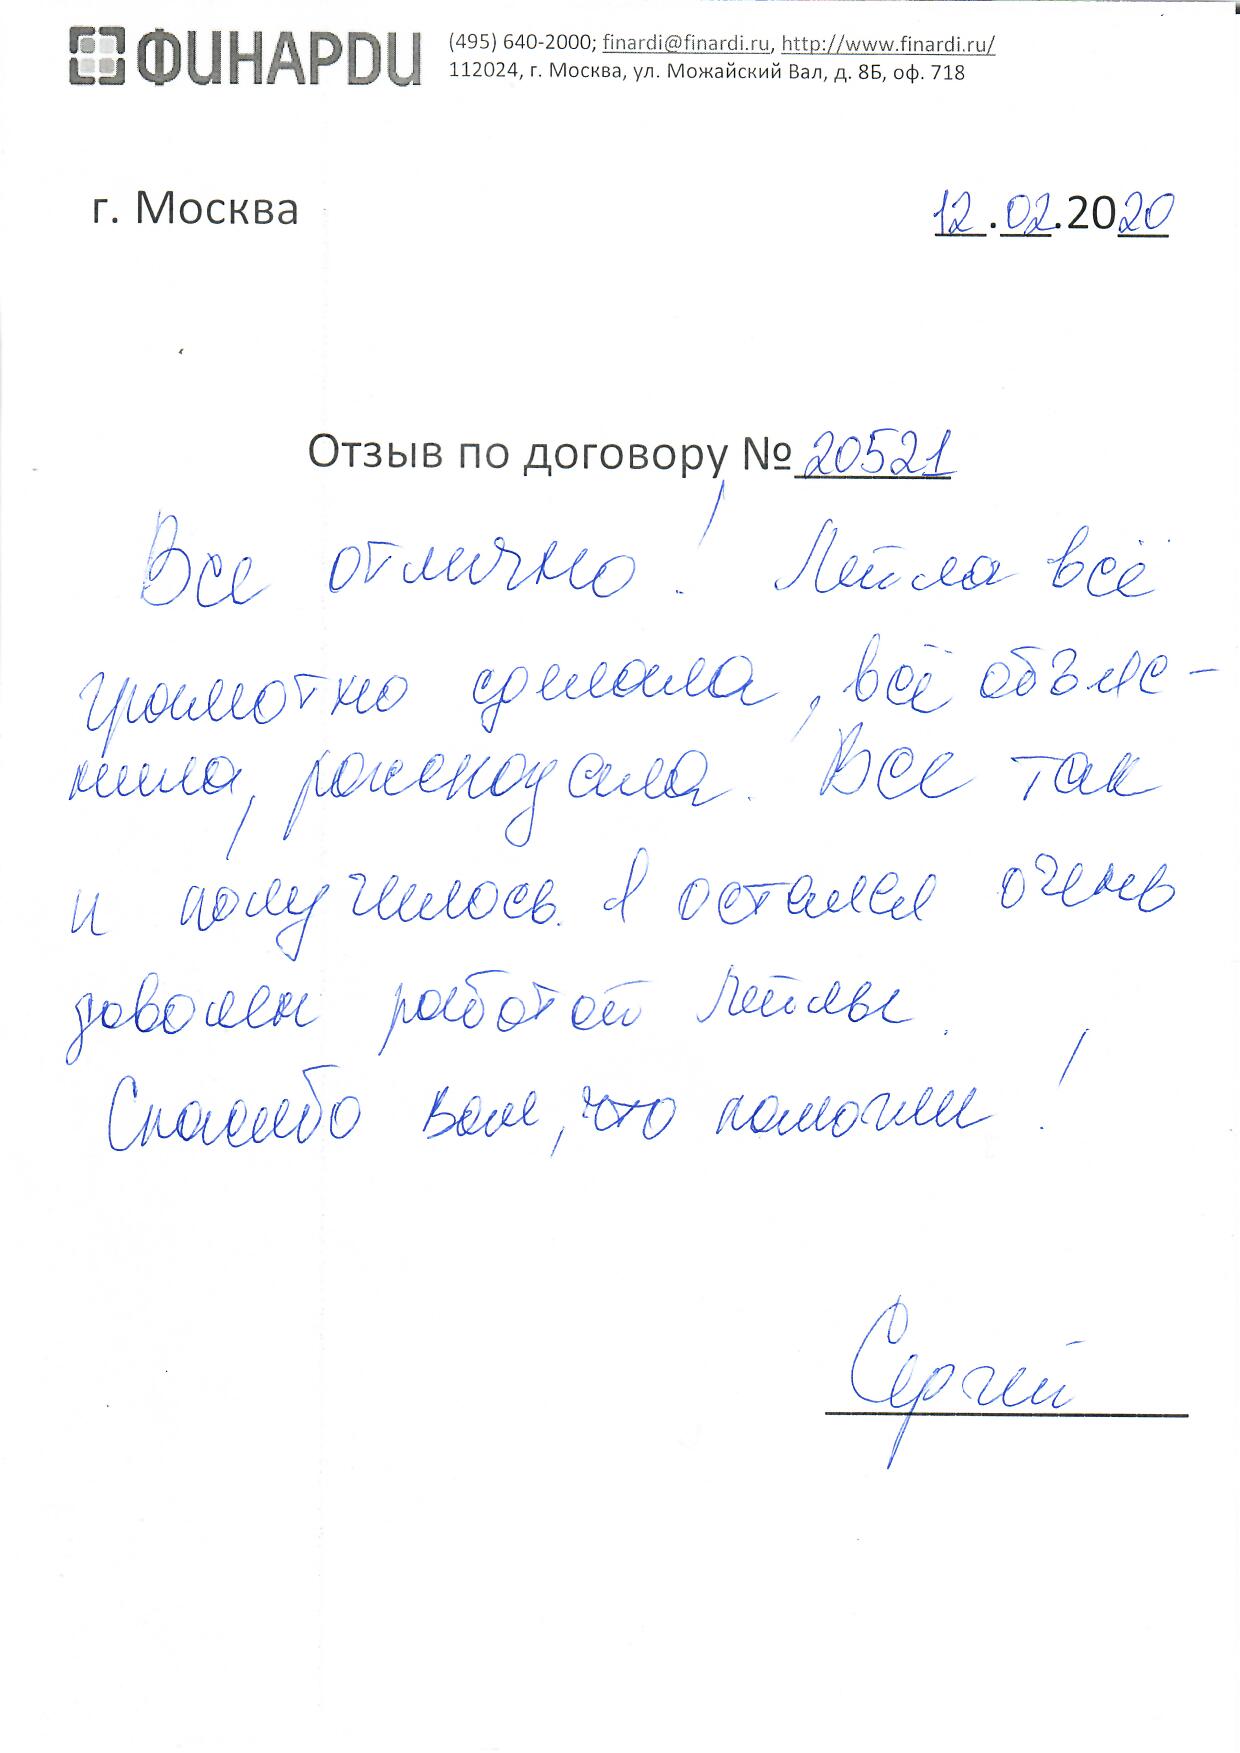 ФИНАРДИ
(495) 640-2000; finardi@finardi.ru, http://www.finardi.ru/
112024, г. Москва, ул. Можайский Вал, д. 8Б, оф. 718
г. Москва 12.02.2020
Отзыв по договору № 20521
Все отлично! Лейла всё
грамотно сделала, всё объяс-
нила, рассказала. Все так
и получилось. Я остался очень
доволен работой Лейлы.
Спасибо Вам, что помогли!
Сергей